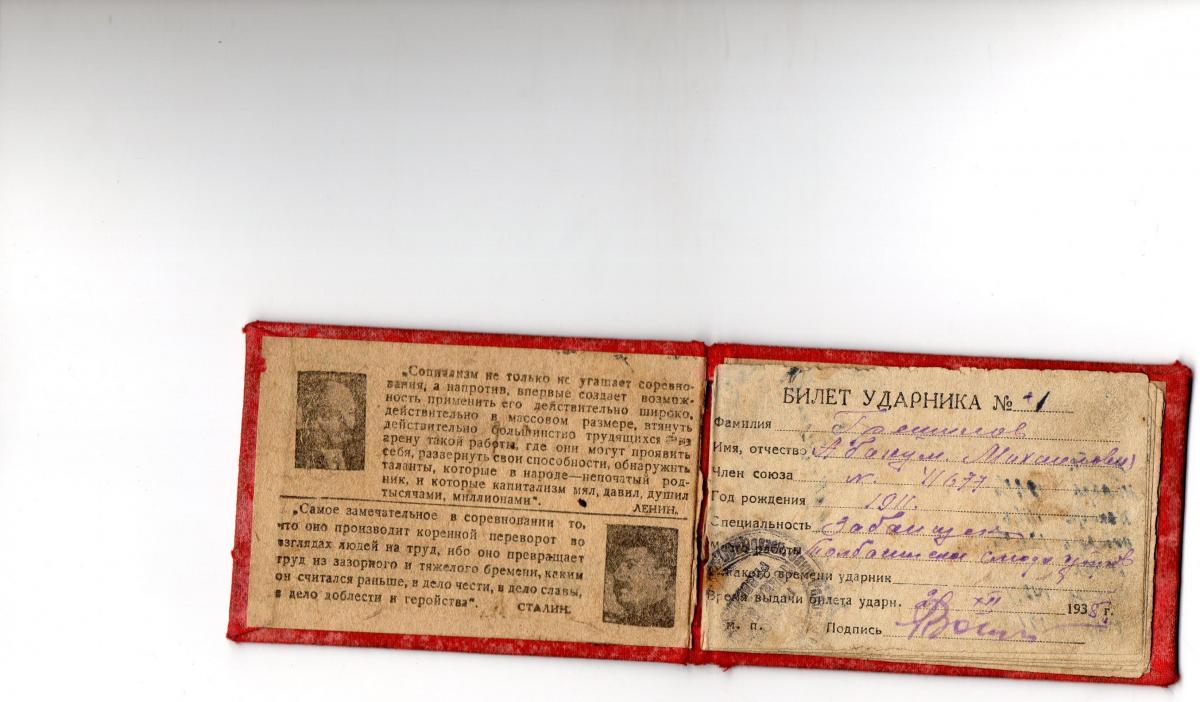 „Социализм не только не угашает соревно-
вания, а напротив, впервые создает возмож-
ность применить его действительно широко,
действительно в массовом размере, втянуть
действительно большинство трудящихся на
арену такой работы, где они могут проявить
себя, развернуть свои способности, обнаружить
таланты, которые в народе—непочатый род-
ник, и которые капитализм мял, давил, душил
тысячами, миллионами".
ЛЕНИН.
„Самое замечательное в соревновании то,
что оно производит коренной переворот во
взглядах людей на труд, ибо оно превращает
труд из зазорного и тяжелого бремени, каким
он считался раньше, в дело чести, в дело славы,
в дело доблести и геройства".
СТАЛИН.
БИЛЕТ УДАРНИКА № 1
Фамилия
Имя, отчество
Член союза №
Год рождения 1911
Специальность
Место работы
С какого времени ударник
Время выдачи билета ударн. XII 1938 г.
м. п. Подпись